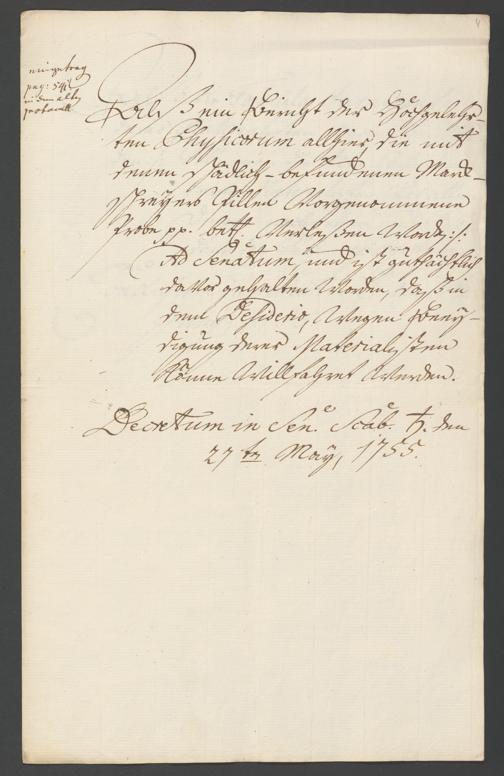 eingetrag
pag: 541
in dem alten
protocoll
Als ein Bericht der Hochgelehr-
ten Physicorum allhier, die mit
denen schädlich-befundenen Mark-
schreyers Pillen Vorgenommene
Probe pp. bett. Verlesen Word. :/:
Ad Senatum und ist gutächtlich
davor gehalten Worden, daß in
dem Desiderio, Wegen Beey-
digung derer Materialisten
Könne Willfahret Werden.
Decretum in Sen. Scab. d. den
27ten May, 1755.